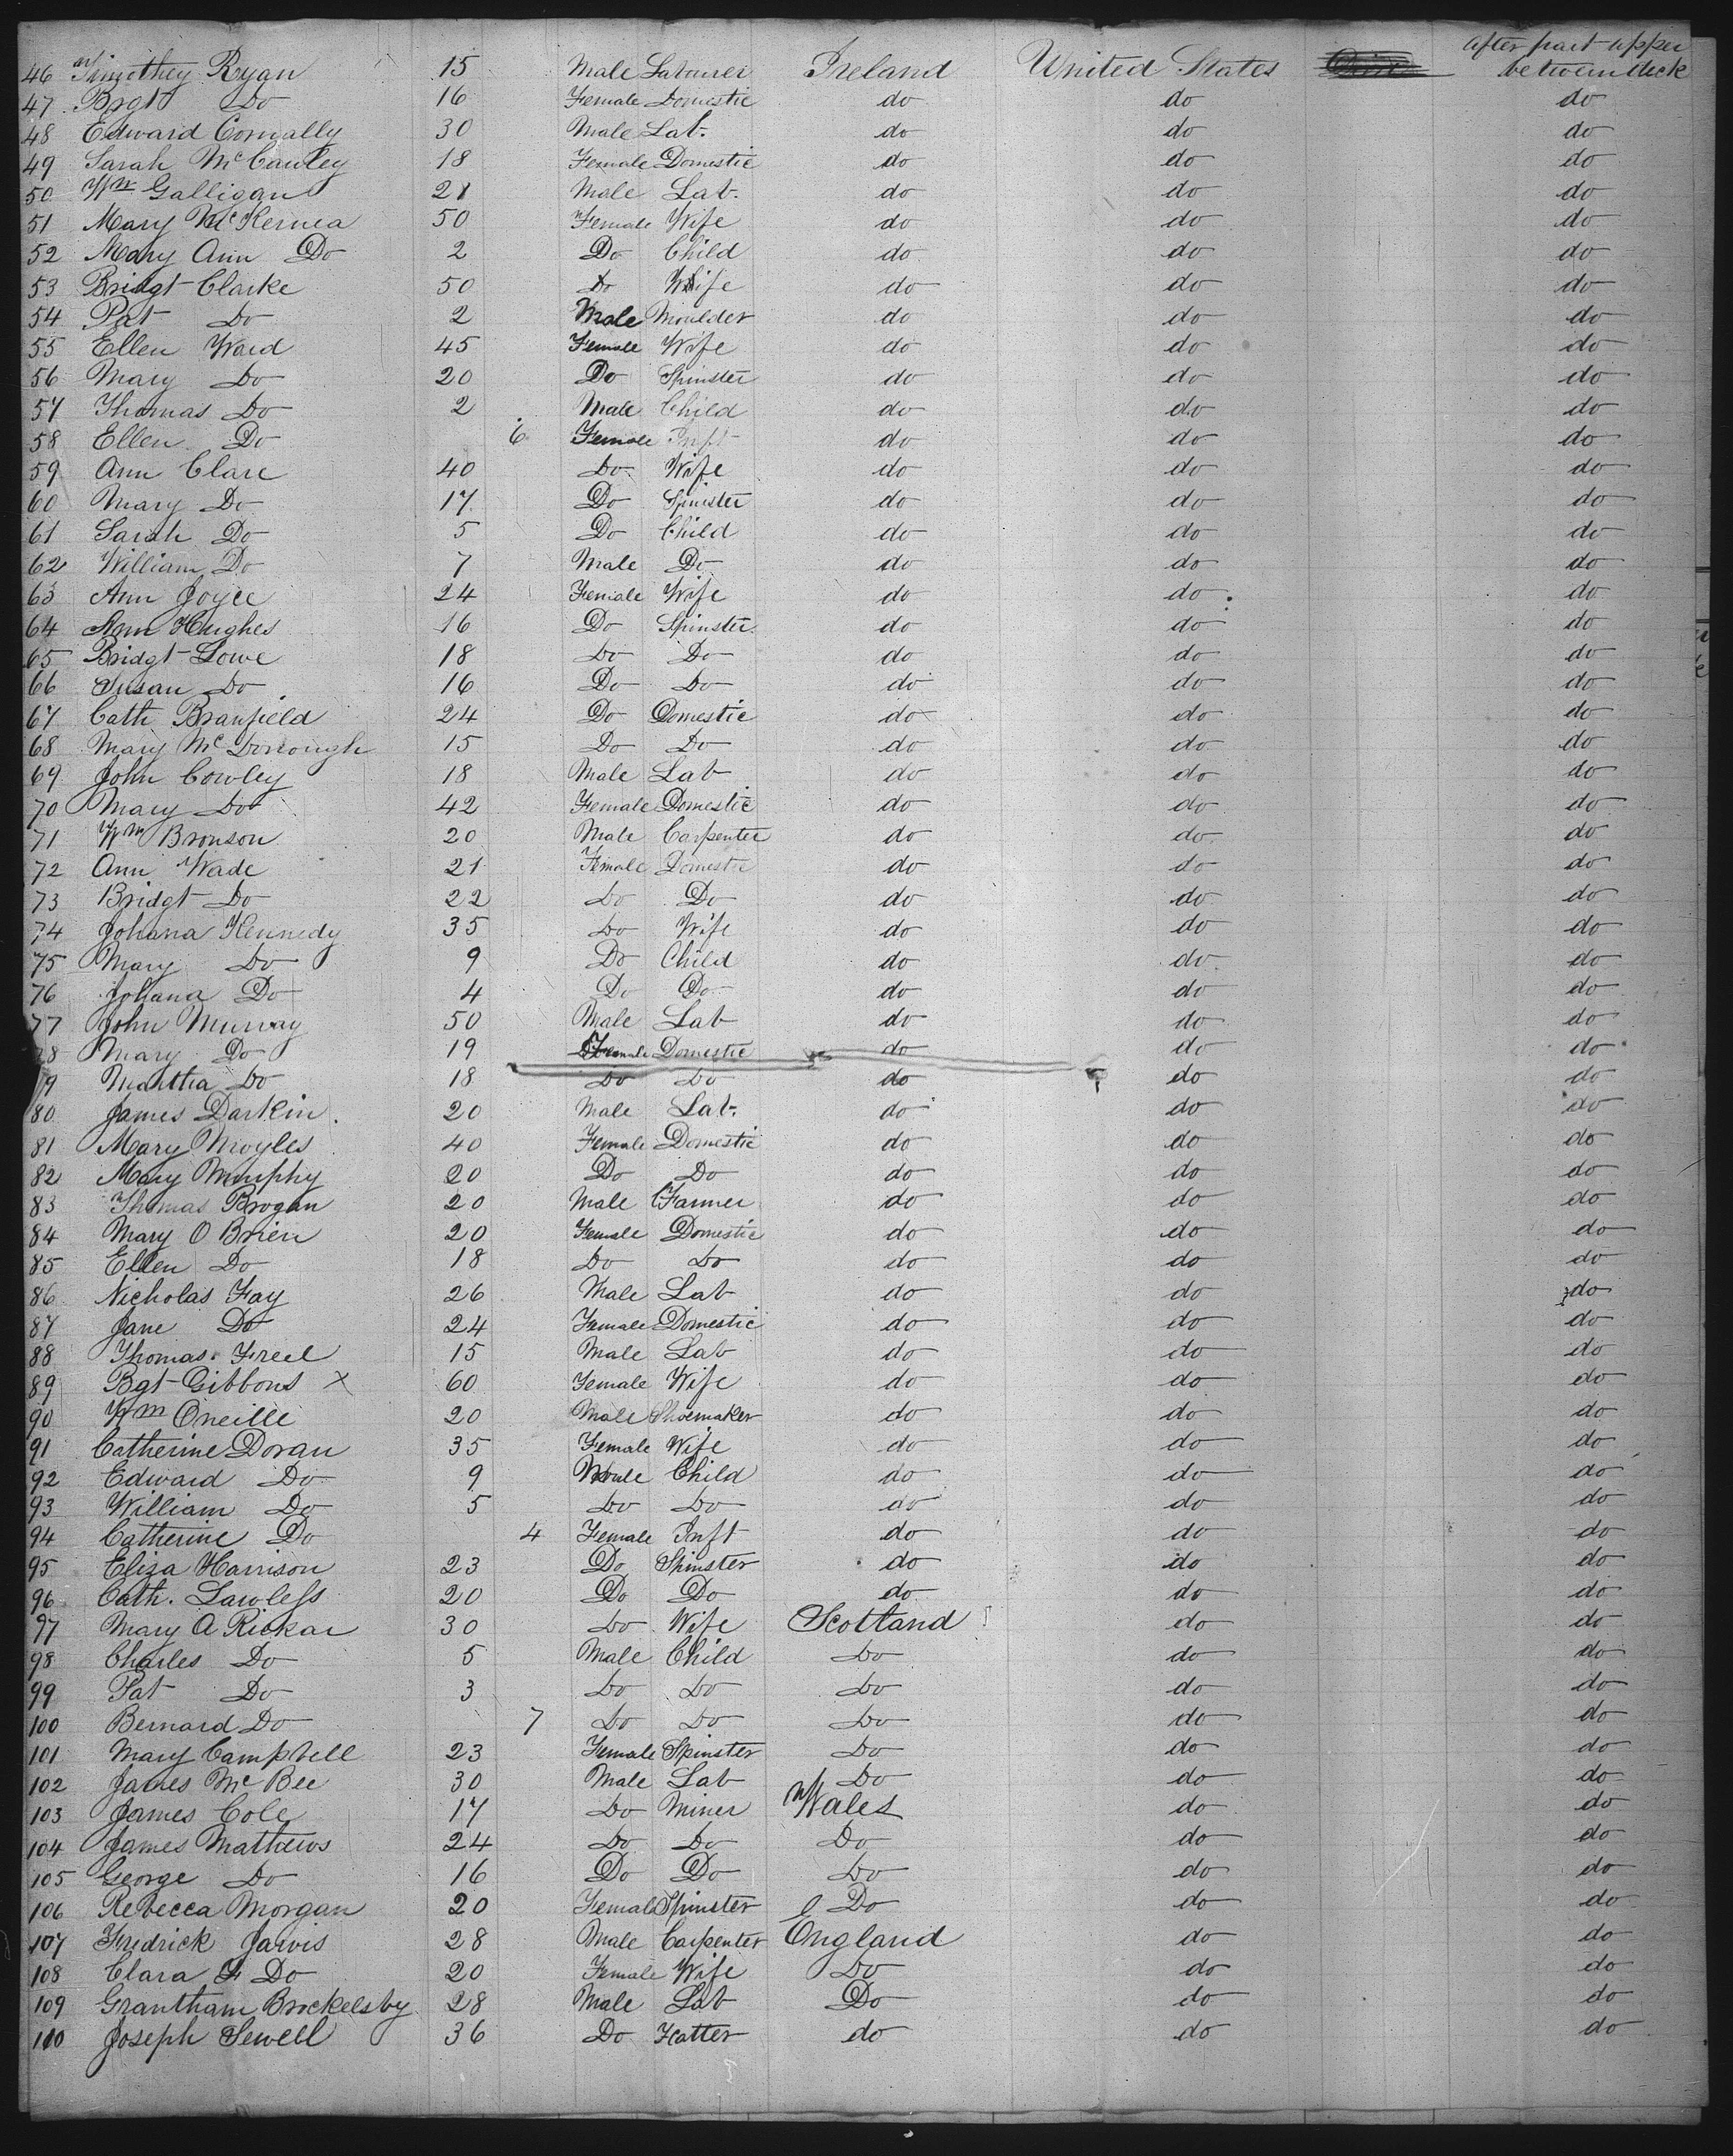 46 Timothey Ryan 15 Male Labourer Ireland United States After part upper between deck
47 Brgt Do 16 Female Domestic do do do
48 Edward Connally 30 Male Lab. do do do
49 Sarah McCauley 18 Female Domestic do do do
50 Wm Galligan 21 Male Lab. do do do
51 Mary McKernea 50 Female Wife do do do
52 Mary Ann Do 2 Do Child do do do
53 Bridgt Clarke 50 Do Wife do do do
54 Pat Do 2 Male Moulder do do do
55 Ellen Ward 45 Female Wife do do do
56 Mary Do 20 Do Spinster do do do
57 Thomas Do 2 Male Child do do do
58 Ellen Do 6 Female Inft do do do
59 Ann Clare 40 Do Wife do do do
60 Mary Do 17 Do Spinster do do do
61 Sarah Do 5 Do Child do do do
62 William Do 7 Male Do do do do
63 Ann Joyce 24 Female Wife do do do
64 Ann Hughes 16 Do Spinster do do do
65 Bridgt Lowe 18 Do Do do do do
66 Susan Do 16 Do Do do do do
67 Cath Branfield 24 Do Domestic do do do
68 Mary McDonough 15 Do Do do do do
69 John Cowley 18 Male Lab do do do
70 Mary Do 42 Female Domestic do do do
71 Wm Bronson 20 Male Carpenter do do do
72 Ann Wade 21 Female Domestic do do do
73 Bridgt Do 22 Do Do do do do
74 Johana Kennedy 35 Do Wife do do do
75 Mary Do 9 Do Child do do do
76 Johana Do 4 Do Do do do do
77 John Murray 50 Male Lab do do do
78 Mary Do 19 Female Domestic do do do
79 Mantha Do 18 Do Do do do do
80 James Darkin 20 Male Lab. do do do
81 Mary Moyles 40 Female Domestic do do do
82 Mary Murphy 20 Do Do do do do
83 Thomas Brogan 20 Male Farmer do do do
84 Mary O Brien 20 Female Domestic do do do
85 Ellen Do 18 Do Do do do do
86 Nicholas Fay 26 Male Lab do do do
87 Jane Do 24 Female Domestic do do do
88 Thomas Freel 15 Male Lab do do do
89 Bgt Gibbons X 60 Female Wife do do do
90 Wm Oneille 20 Male Shoemaker do do do
91 Catherine Doran 35 Female Wife do do do
92 Edward Do 9 Male Child do do do
93 William Do 5 Do Do do do do
94 Catherine Do 4 Female Inft do do do
95 Eliza Harrison 23 Do Spinster do do do
96 Cath. Lawless 20 Do Do do do do
97 Mary A Rickar 30 Do Wife Scotland do do
98 Charles Do 5 Male Child Do do do
99 Pat Do 3 Do Do Do do do
100 Bernard Do 7 Do Do Do do do
101 Mary Campbell 23 Female Spinster Do do do
102 James McBee 30 Male Lab Do do do
103 James Cole 17 Do Miner Wales do do
104 James Mathews 24 Do Do Do do do
105 George Do 16 Do Do Do do do
106 Rebecca Morgan 20 Female Spinster Do do do
107 Fredrick Jarvis 28 Male Carpenter England do do
108 Clara F Do 20 Female Wife Do do do
109 Grantham Brockelsby 28 Male Lab Do do do
110 Joseph Sewell 36 Do Hatter do do do